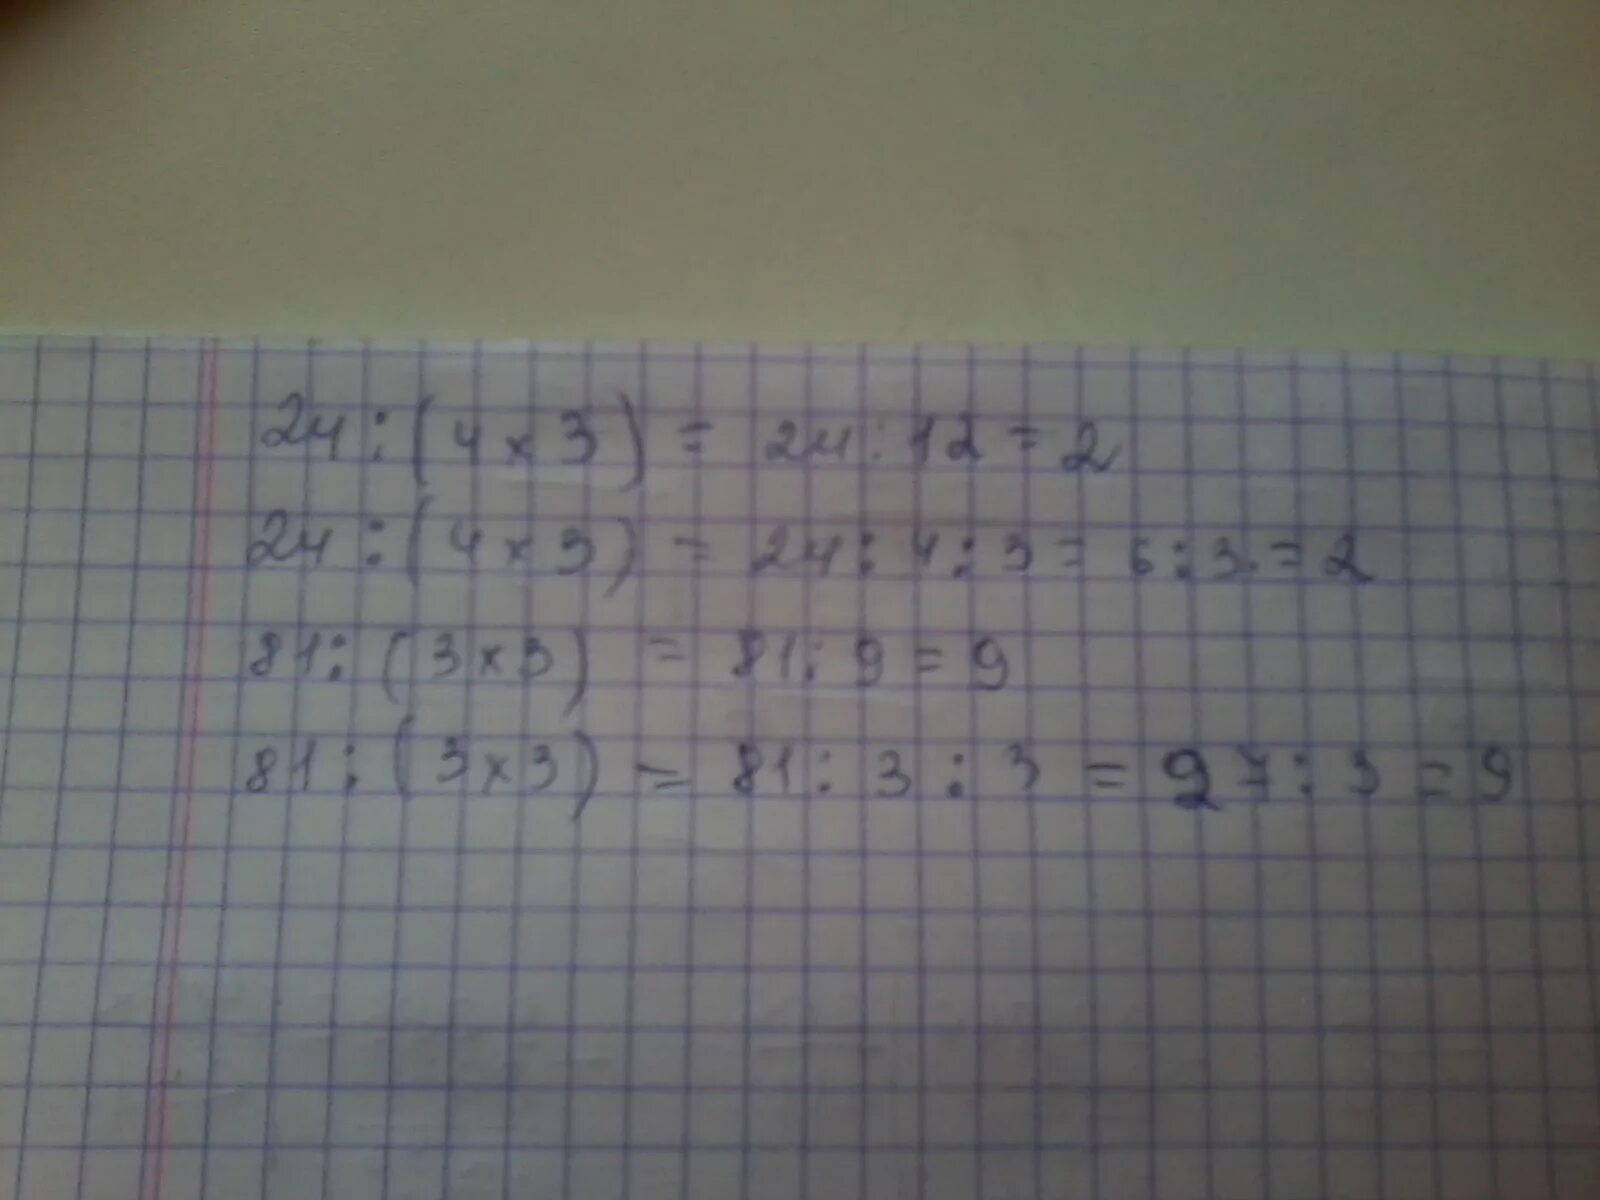 24 : (4 × 3) = 24 : 12 = 2
24 : (4 × 3) = 24 : 4 : 3 = 6 : 3 = 2
81 : (3 × 3) = 81 : 9 = 9
81 : (3 × 3) = 81 : 3 : 3 = 27 : 3 = 9